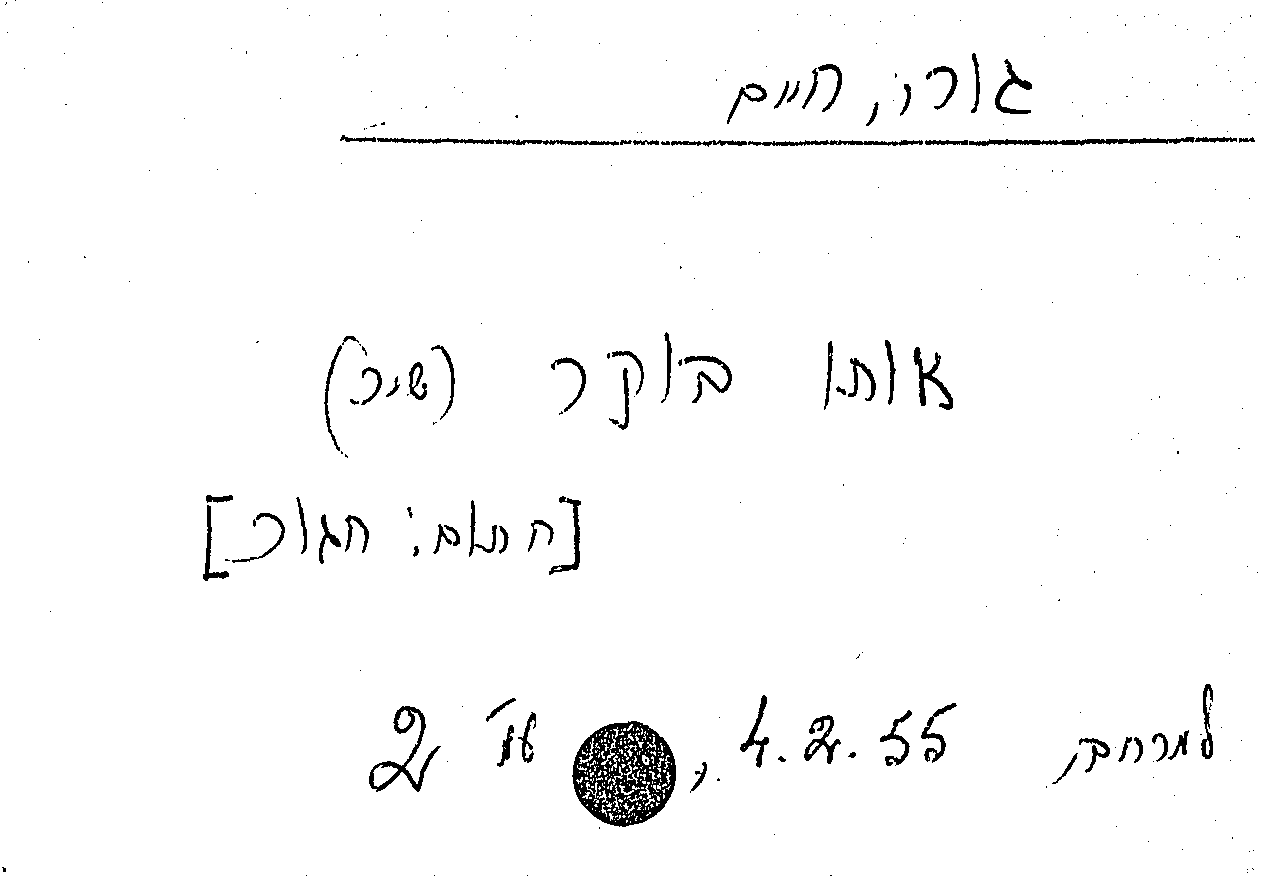 גורי, חיים
אותו בוקר (שיר)
[חתום: חגור]
למרחב, 4.2.55, עמ' 2